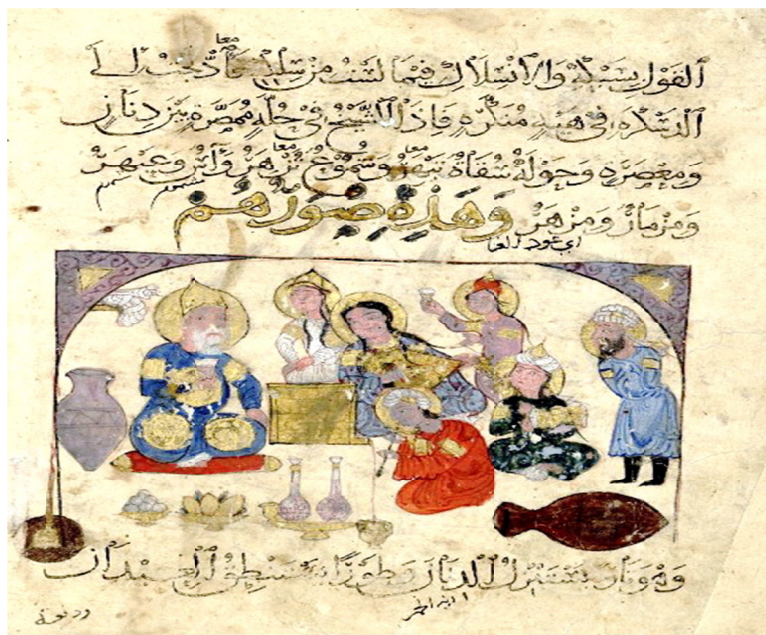 القول بسبكه والانسلال فيما لست من سلكه فادلجت الى
الدسكره في هيئه منكره فاذا الشيخ في حله ممصره بين دنان
ومعصره وحوله سقاة تبهر وشموع تزهر وآس وعبهر
ومزمار ومزهر وهذه صورهم
اي عود
وهو تارة يستبزل الدنان وطورا يستنطق العيدان
ودفعة